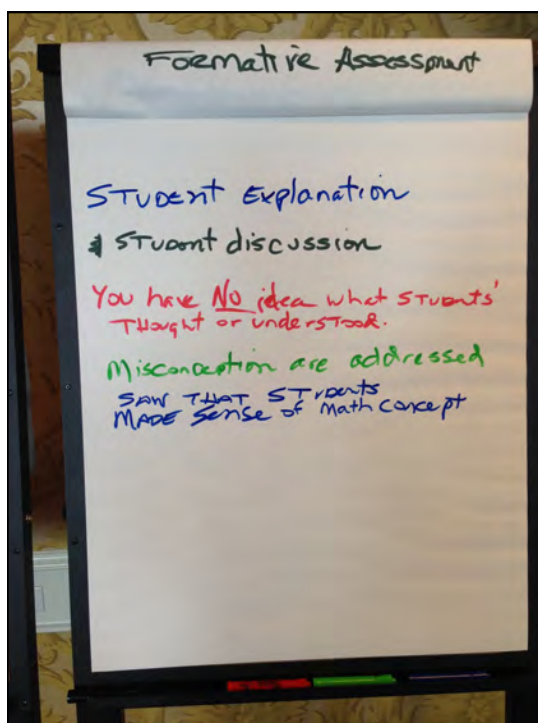 Formative Assessment
STUDENT Explanation
STUDENT discussion
You have NO idea what STUDENTS'
THOUGHT or understood.
Misconception are addressed
SAW THAT STUDENTS
MADE Sense of Math Concept